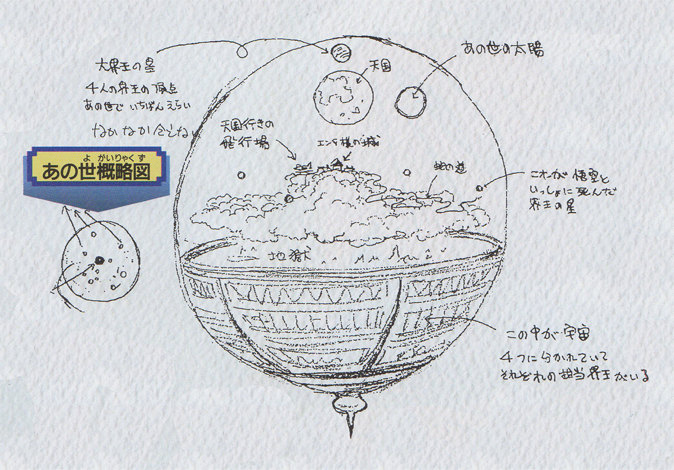 大界王の星
4人の界王の頂点
あの世で いちばんえらい
なかなか会えない
よ がいりゃく ず
あの世概略図
天国
あの世の太陽
天国行きの
飛行場
エンマ様の城
蛇の道
これが 悟空と
いっしょに 死んだ
界王の星
地獄
この中が 宇宙
4つに分かれていて
それぞれの担当界王がいる